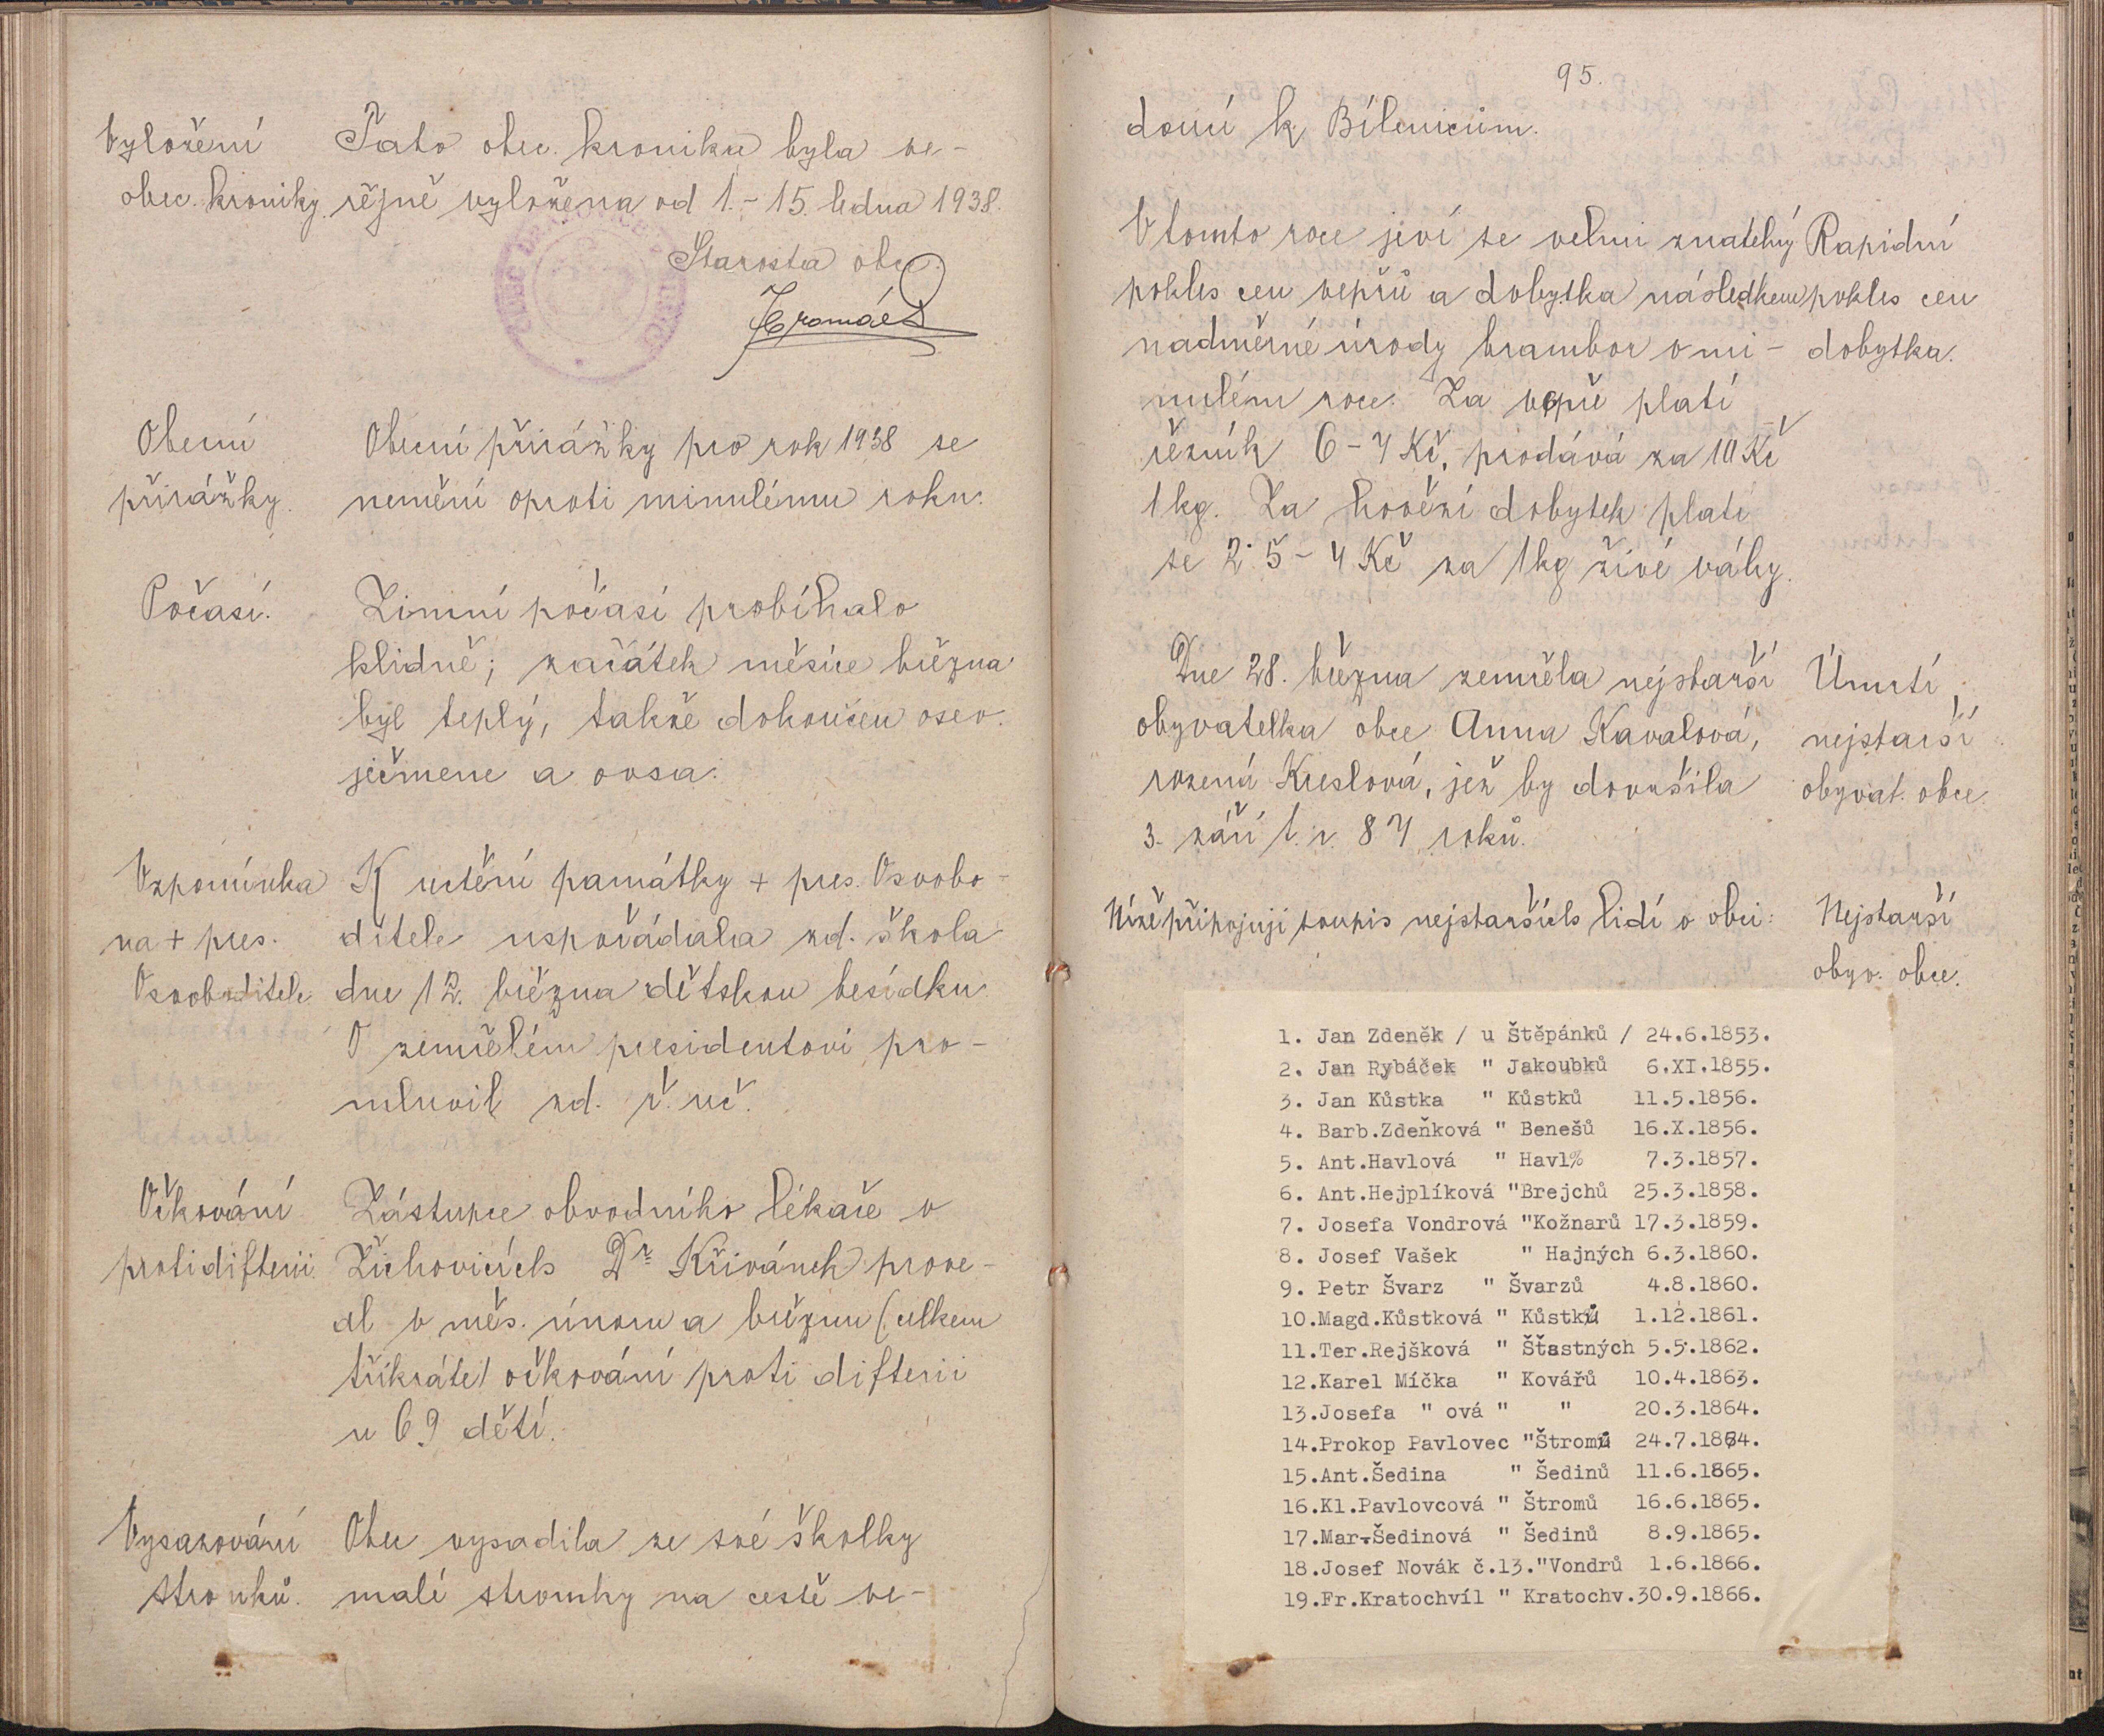 Vyložení
obec. kroniky
Tato obec. kronika byla ve-
řejně vyložena od 1.-15. ledna 1938.
Starosta obce:
Obecní
přirážky.
Obecní přirážky pro rok 1938 se
nemění oproti minulému roku.
Počasí.
Zimní počasí probíhalo
klidně; začátek měsíce března
byl teplý, takže dokončen osev
ječmene a ovsa.
Vzpomínka
na + pres.
Osvoboditele
K uctění památky + pres. Osvobo-
ditele uspořádala zd. škola
dne 12. března dětskou besídku
O zemřelém presidentovi pro-
mluvil zd. ř. uč.
Očkování
proti difterii.
Zástupce obvodního lékaře v
Žichovicích Dr Křivánek prove-
dl v měs. únoru a březnu (celkem
třikráte) očkování proti difterii
u 69 dětí.
Vysazování
stromků.
Obec vysadila ze své školky
malé stromky na cestě ve-
95.
doucí k Bílenicím.
V tomto roce jeví se velmi znatelný
pokles cen vepřů a dobytka následkem
nadměrné úrody brambor v mi-
nulém roce. Za vepře platí
řezník 6-7 Kč, prodává za 10 Kč
1 kg. Za hovězí dobytek platí
se 2·5-4 Kč za 1 kg živé váhy.
Rapidní
pokles cen
dobytka.
Dne 28. března zemřela nejstarší
obyvatelka obce Anna Kavalová,
rozená Kreslová, jež by dovršila
3. září t. r. 87 roků.
Úmrtí
nejstarší
obyvat. obce.
Níže připojuji soupis nejstarších lidí v obci:
Nejstarší
obyv. obce.
1. Jan Zdeněk / u Štěpánků / 24.6.1853.
2. Jan Rybáček " Jakoubků 6.XI.1855.
3. Jan Kůstka " Kůstků 11.5.1856.
4. Barb.Zdeňková " Benešů 16.X.1856.
5. Ant.Havlová " Havl% 7.3.1857.
6. Ant.Hejplíková "Brejchů 25.3.1858.
7. Josefa Vondrová "Kožnarů 17.3.1859.
8. Josef Vašek " Hajných 6.3.1860.
9. Petr Švarz " Švarzů 4.8.1860.
10.Magd.Kůstková " Kůstků 1.12.1861.
11.Ter.Rejšková " Šťastných 5.5.1862.
12.Karel Míčka " Kovářů 10.4.1863.
13.Josefa " ová " " 20.3.1864.
14.Prokop Pavlovec "Štromů 24.7.1864.
15.Ant.Šedina " Šedinů 11.6.1865.
16.Kl.Pavlovcová " Štromů 16.6.1865.
17.Mar.Šedinová " Šedinů 8.9.1865.
18.Josef Novák č.13."Vondrů 1.6.1866.
19.Fr.Kratochvíl " Kratochv.30.9.1866.